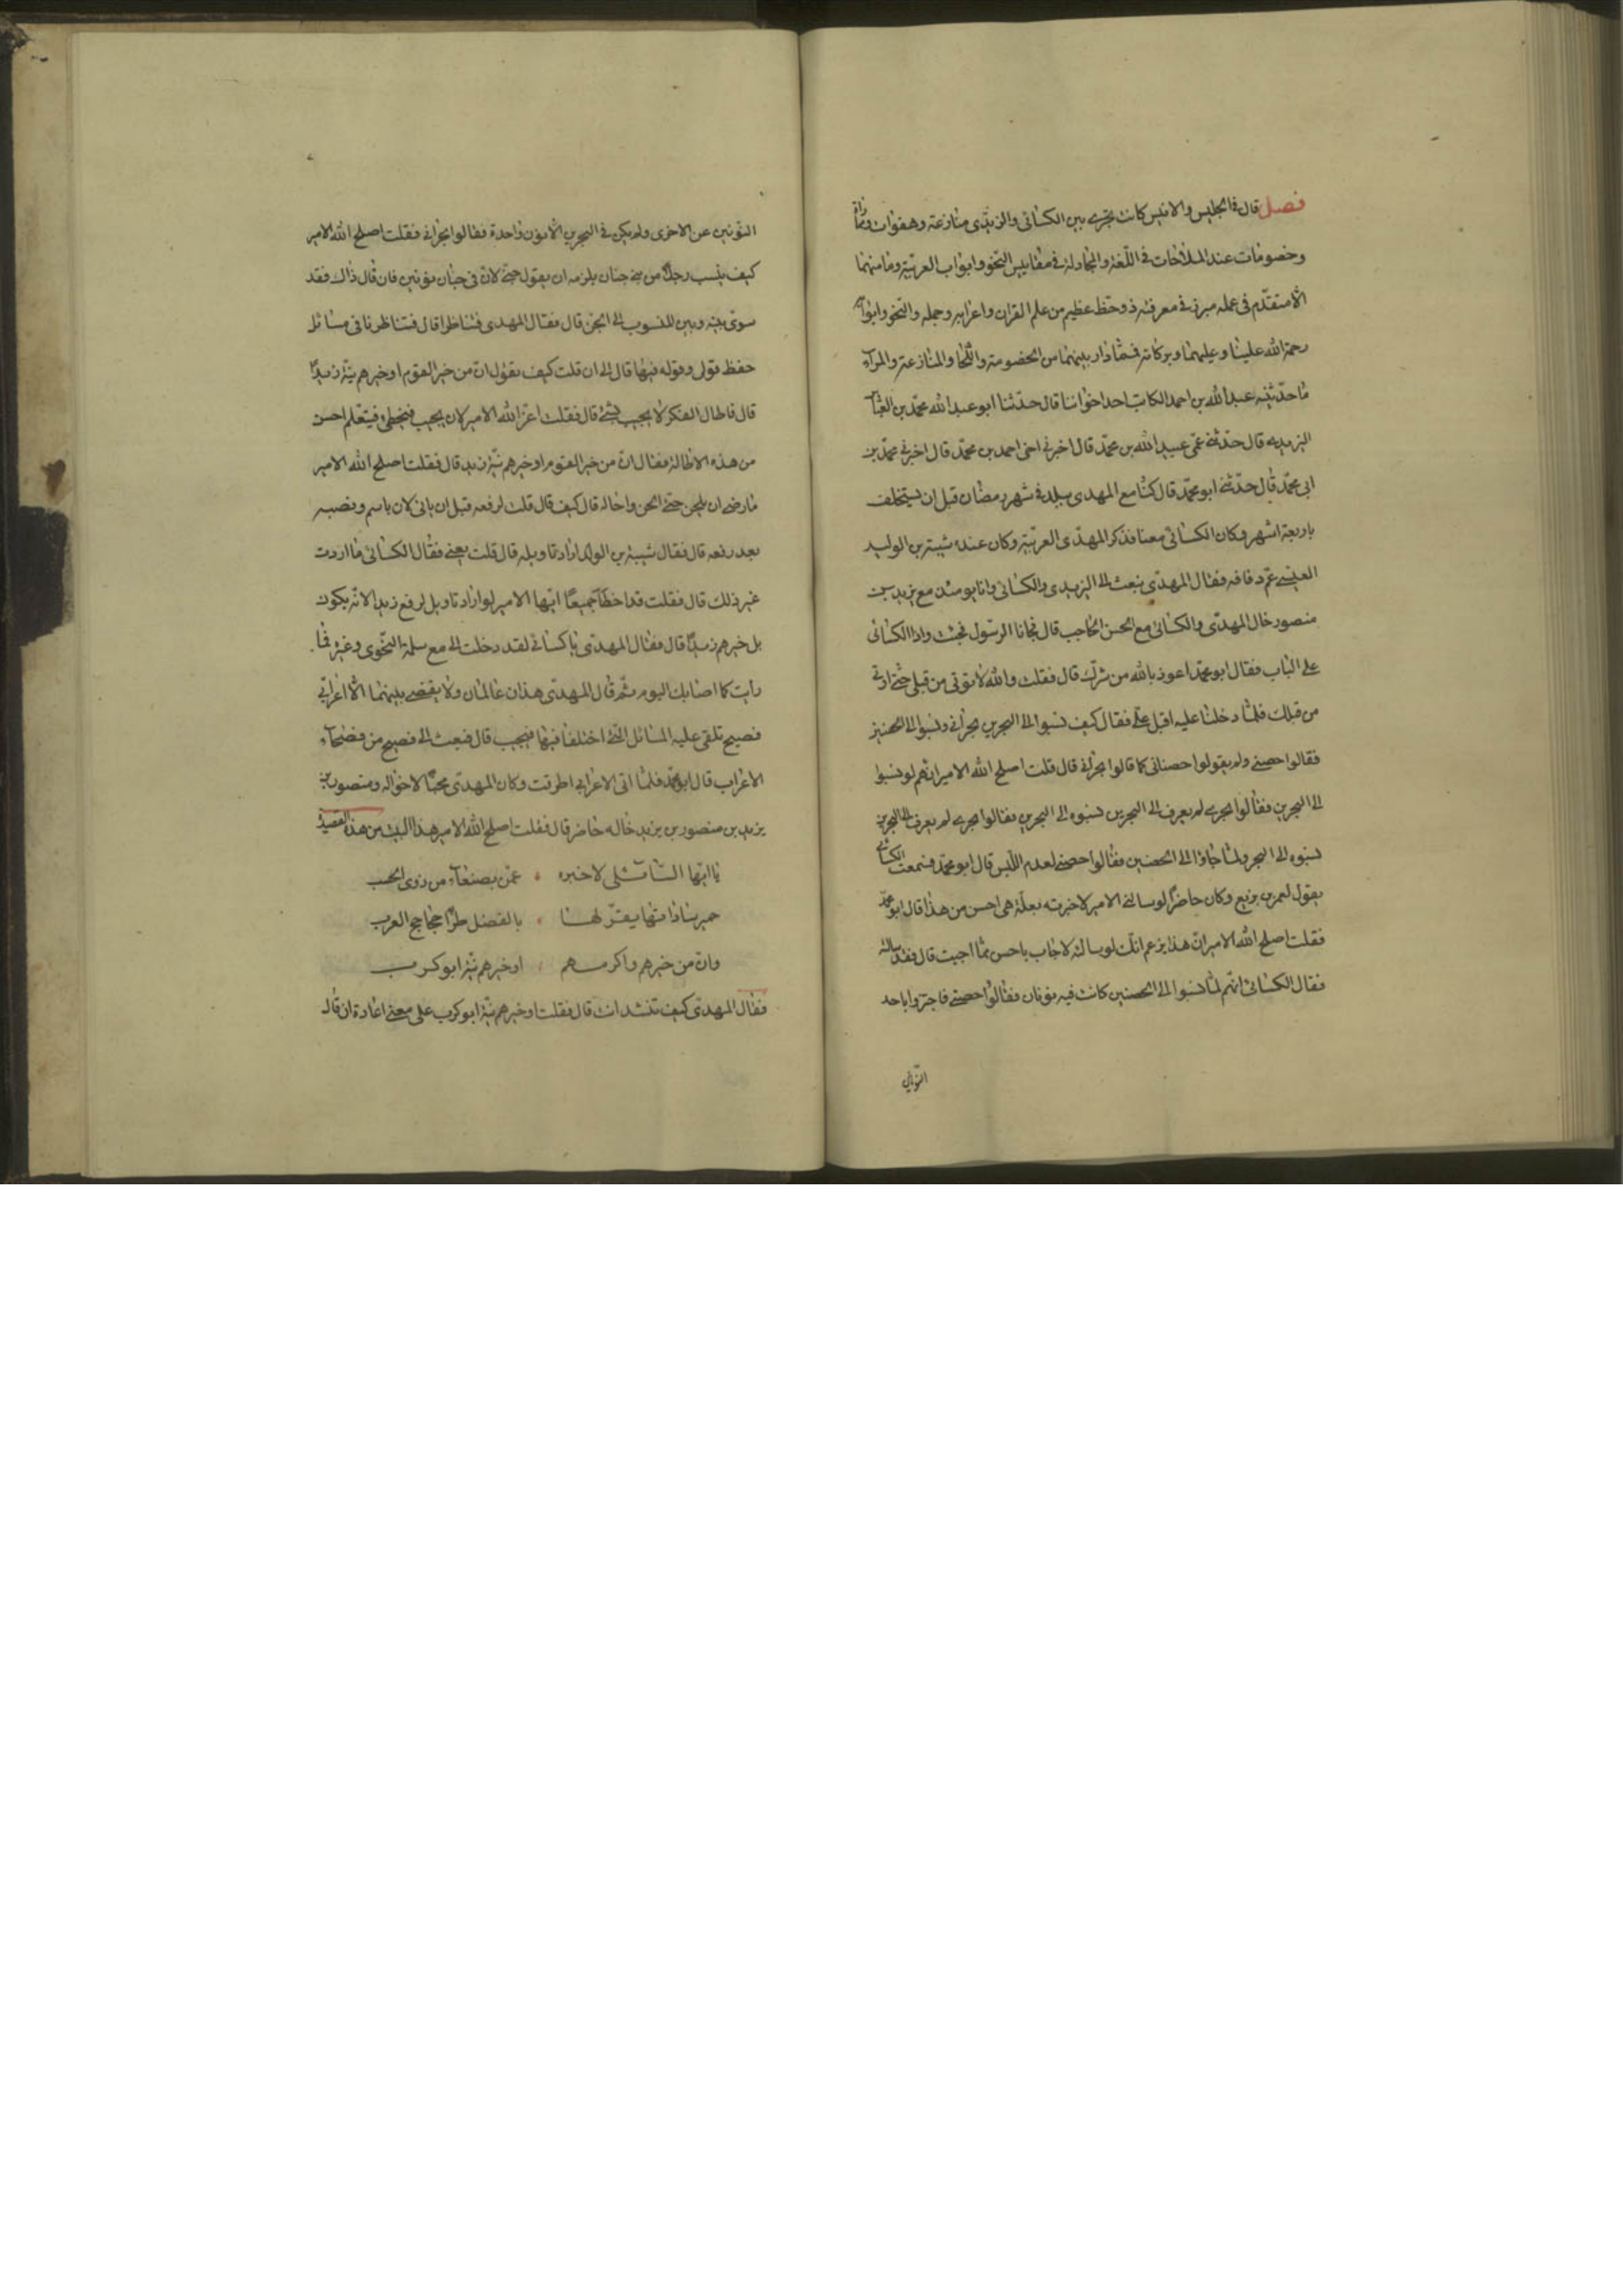 فصل قال في الجليس والانيس كانت تجري بين الكسائي واليزيدي منازعة وهفوات
وخصومات عند الملاحات في اللغة والمجادلة في مقاييس النحو وابواب العربية وما منهما
الا متقدم في عمله مبرز في معرفته ذو حظ عظيم من علم القران واعرابه وجمله والنحو وابوابه
رحمة الله علينا وعليهما وبركاته فمما دار بينهما من الخصومة واللحا والمنازعة والمرآء
ما حدثنيه عبد الله بن احمد الكاتب احد اخواننا قال حدثنا ابو عبد الله محمد بن العباس
اليزيدي قال حدثني عمي عبيد الله بن محمد قال اخبرني اخي احمد بن محمد قال اخبرني محمد بن
ابي محمد قال حدثني ابو محمد قال كنا مع المهدي ببلد في شهر رمضان قبل ان يستخلف
باربعة اشهر وكان الكسائي معنا فذكر المهدي العربية وكان عنده شيبة بن الوليد
العبسي عم دفافه فقال المهدي نبعث الى اليزيدي والكسائي وانا يومئذ مع يزيد بن
منصور خال المهدي والكسائي مع الحسن الحاجب قال فجانا الرسول فجئت واذا الكسائي
على الباب فقال ابو محمد اعوذ بالله من شرك قال فقلت والله لا نوتي من قبلي حتى اوتي
من قبلك فلما دخلنا عليه اقبل علي فقال كيف نسبوا الى البحرين بحراني ونسبوا الى الحصنين
فقالوا حصني ولم يقولوا حصناني كما قالوا بحراني قال قلت اصلح الله الامير انهم لو نسبوا
الى البحرين فقالوا بحري لم يعرف الى البحرين نسبوه الى البحرين فقالوا بحري لم يعرف الى البحرين
نسبوه الى البحر ولما جاؤا الى الحصنين فقالوا حصني لعدم اللبس قال ابو محمد فسمعت الكسائي
يقول لعمر بن بزيع وكان حاضرا لو سالني الامير لاخبرته بعلة هي احسن من هذا قال ابو محمد
فقلت اصلح الله الامير ان هذا يزعم انك لو سالته لاجاب باحسن مما اجبت قال فقد سالته
فقال الكسائي انهم لما نسبوا الى الحصنين كانت فيه نونان فقالوا حصني فاجتزوا باحد
النونين
النونين عن الاخرى ولم يكن في البحرين الا نون واحدة فقالوا بحراني فقلت اصلح الله الامير
كيف ينسب رجلا من بني جنان يلزمه ان يقول جني لان في جنان نونين فان قال ذاك فقد
سوى بينه وبين المنسوب الى الجن قال فقال المهدي فتناظرا قال فتناظرنا في مسائل
حفظ قولي وقوله فيها قال الى ان قلت كيف تقول ان من خير القوم او خيرهم نية زيدا
قال فاطال الفكر لا يجيب بشئ قال فقلت اعز الله الامير لان يجيب فيخطي فيتعلم احسن
من هذه الاطالة فقال ان من خير القوم او خيرهم نية زيد قال فقلت اصلح الله الامير
ما رضي ان يلحن حتى لحن واحال قال كيف قال قلت لرفعه قبل ان ياتي لان باسم ونصبه
بعد رفعه قال فقال شيبة بن الوليد اراد تاويله قال قلت يعني فقال الكسائي ما اردت
غير ذلك قال فقلت قد اخطآ جميعا ايها الامير لو اراد تاويل لرفع زيدا لانه يكون
بل خيرهم زيدا قال فقال المهدي يا كسائي لقد دخلت الي مع سلمة النحوي وغيره فما
رايت كما اصابك اليوم ثم قال المهدي هذان عالمان ولا يقضي بينهما الا اعرابي
فصيح تلقى عليه المسائل التي اختلفا فيها فيجيب قال فبعث الى فصيح من فصحآء
الاعراب قال ابو محمد فلما اتى الاعرابي اطرقت وكان المهدي محبا لاخواله ومنصور بن
يزيد بن منصور بن يزيد خاله حاضر قال فقلت اصلح الله الامير هذا البيت من هذه القصيدة
يا ايها السائلي لاخبره عمن بصنعآء من ذوي الحسب
حمير ساداتها يقر لها بالفضل طرا جحاجح العرب
وان من خيرهم واكرمهم او خيرهم نية ابو كرب
فقال المهدي كيف تنشد انت قال فقلت او خيرهم نية ابو كرب على معنى اعادة ان قال